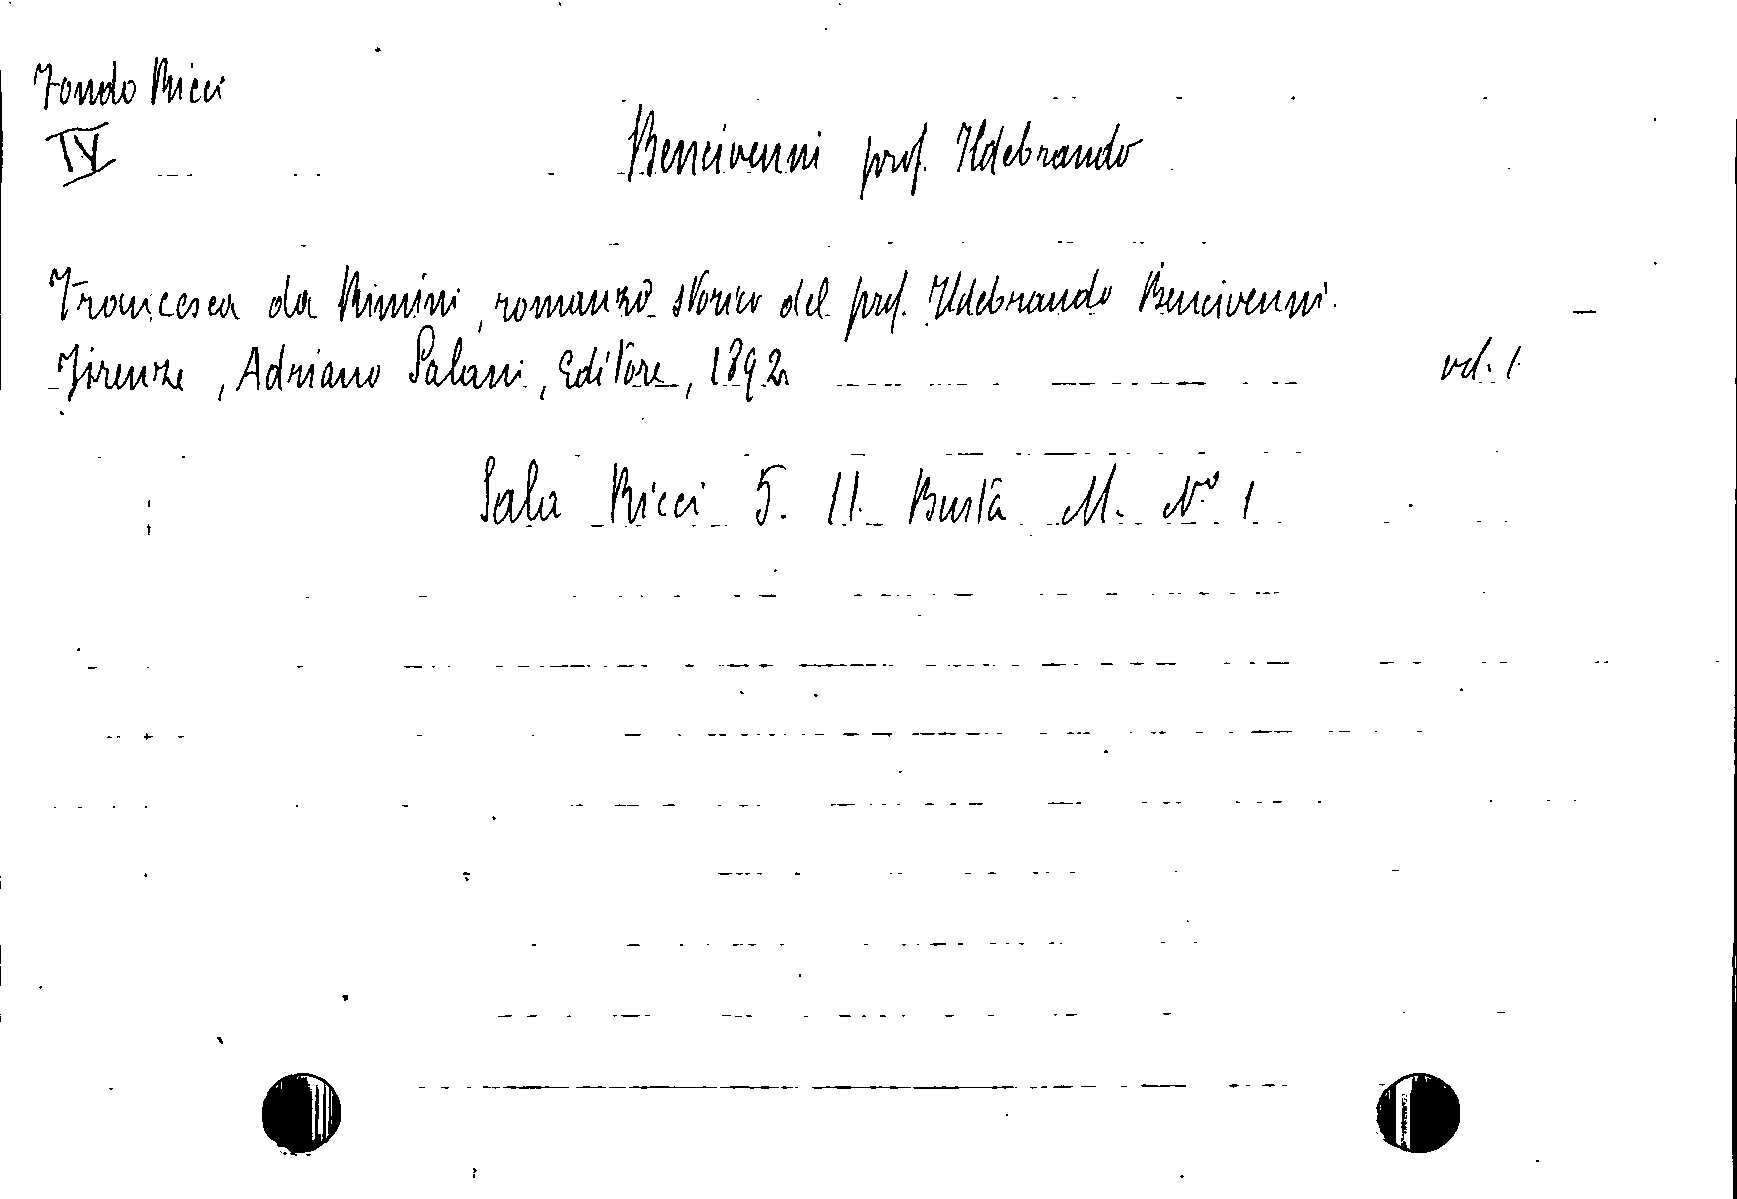 Fondo Ricci
IV
Bencivenni prof. Ildebrando
Francesca da Rimini, romanzo storico del prof. Ildebrando Bencivenni.
Firenze, Adriano Salani, Editore, 1892 vol. 1
Sala Ricci 5. II. Busta M. N° 1